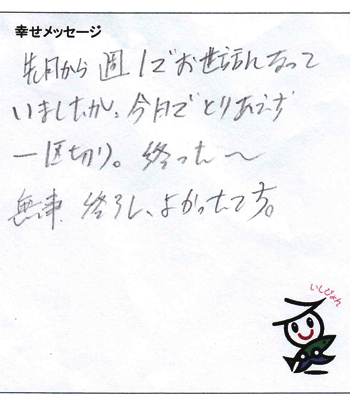 幸せメッセージ
先月から週1でお世話になって
いましたが、今月でとりあえず
一区切り。終った〜
無事、終了し、よかったです。
いしぴょん